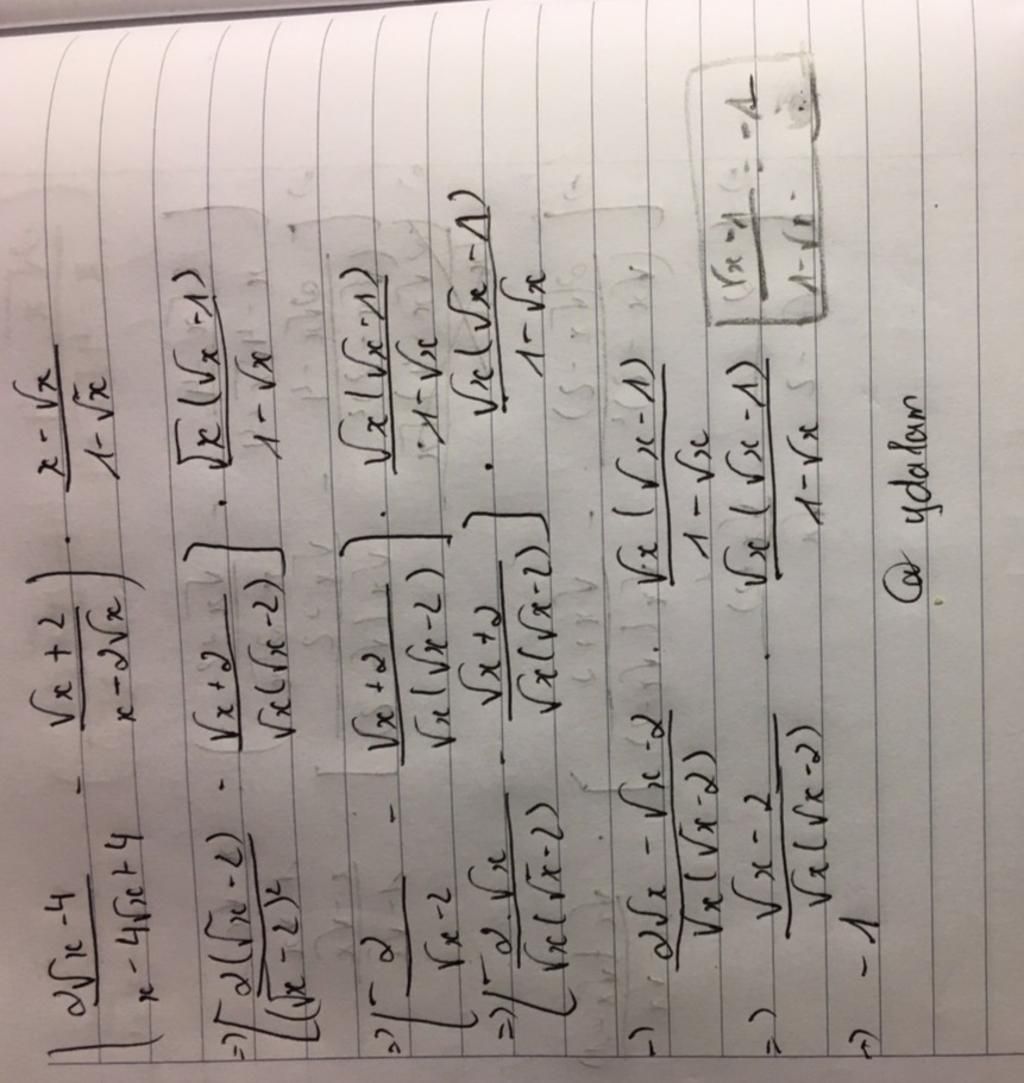 ( 2√x - 4 / x - 4√x + 4 - √x + 2 / x - 2√x ) . x - √x / 1 - √x
=> [ 2(√x - 2) / (√x - 2)² - √x + 2 / √x(√x - 2) ] . √x(√x - 1) / 1 - √x
=> [ 2 / √x - 2 - √x + 2 / √x(√x - 2) ] . √x(√x - 1) / 1 - √x
=> [ 2.√x / √x(√x - 2) - √x + 2 / √x(√x - 2) ] . √x(√x - 1) / 1 - √x
=> 2√x - √x - 2 / √x(√x - 2) . √x(√x - 1) / 1 - √x
=> √x - 2 / √x(√x - 2) . √x(√x - 1) / 1 - √x
√x - 1 / 1 - √x = -1
=> - 1
@ ydalam